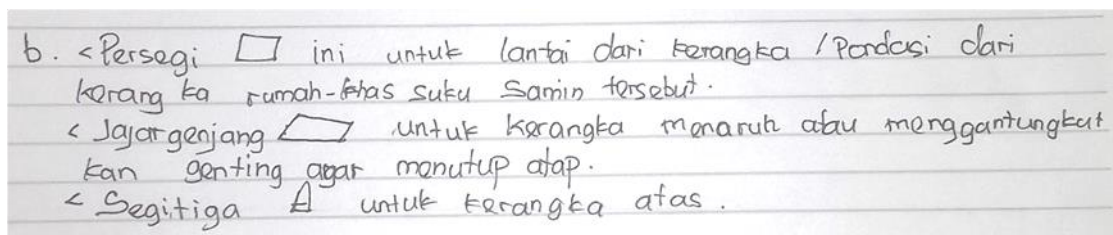 b. < Persegi □ ini untuk lantai dari kerangka / Pondasi dari
kerang ka rumah-khas suku Samin tersebut.
< Jajargenjang ▱ untuk kerangka menaruh atau menggantungkat
kan genting agar menutup atap.
< Segitiga △ untuk kerangka atas.